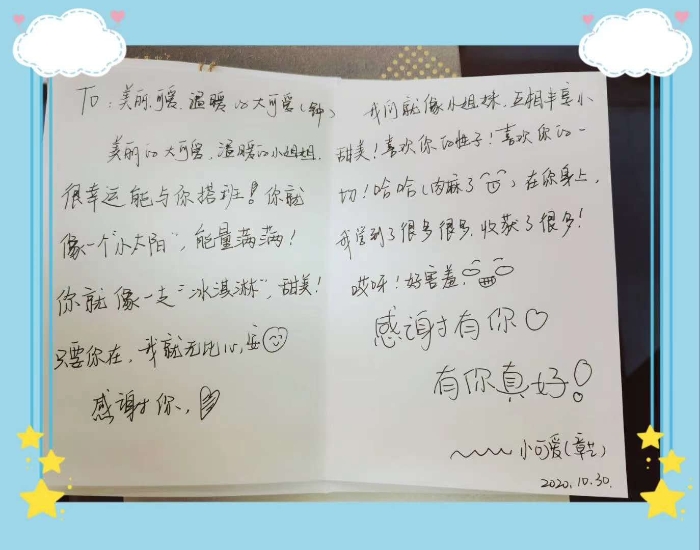 To：美丽.可爱.温暖的大可爱(钟)
美丽的大可爱，温暖的小姐姐.
很幸运能与你搭班！你就
像一个"小太阳"，能量满满！
你就像一支"冰淇淋"，甜美！
只要你在，我就无比心安
感谢你，
我们就像小姐妹，互相丰享小
甜美！喜欢你的性子！喜欢你的一
切！哈哈(肉麻了)在你身上，
我学到了很多很多，收获了很多！
哎呀！好害羞，
感谢有你
有你真好！
小可爱(章兰)
2020.10.30.